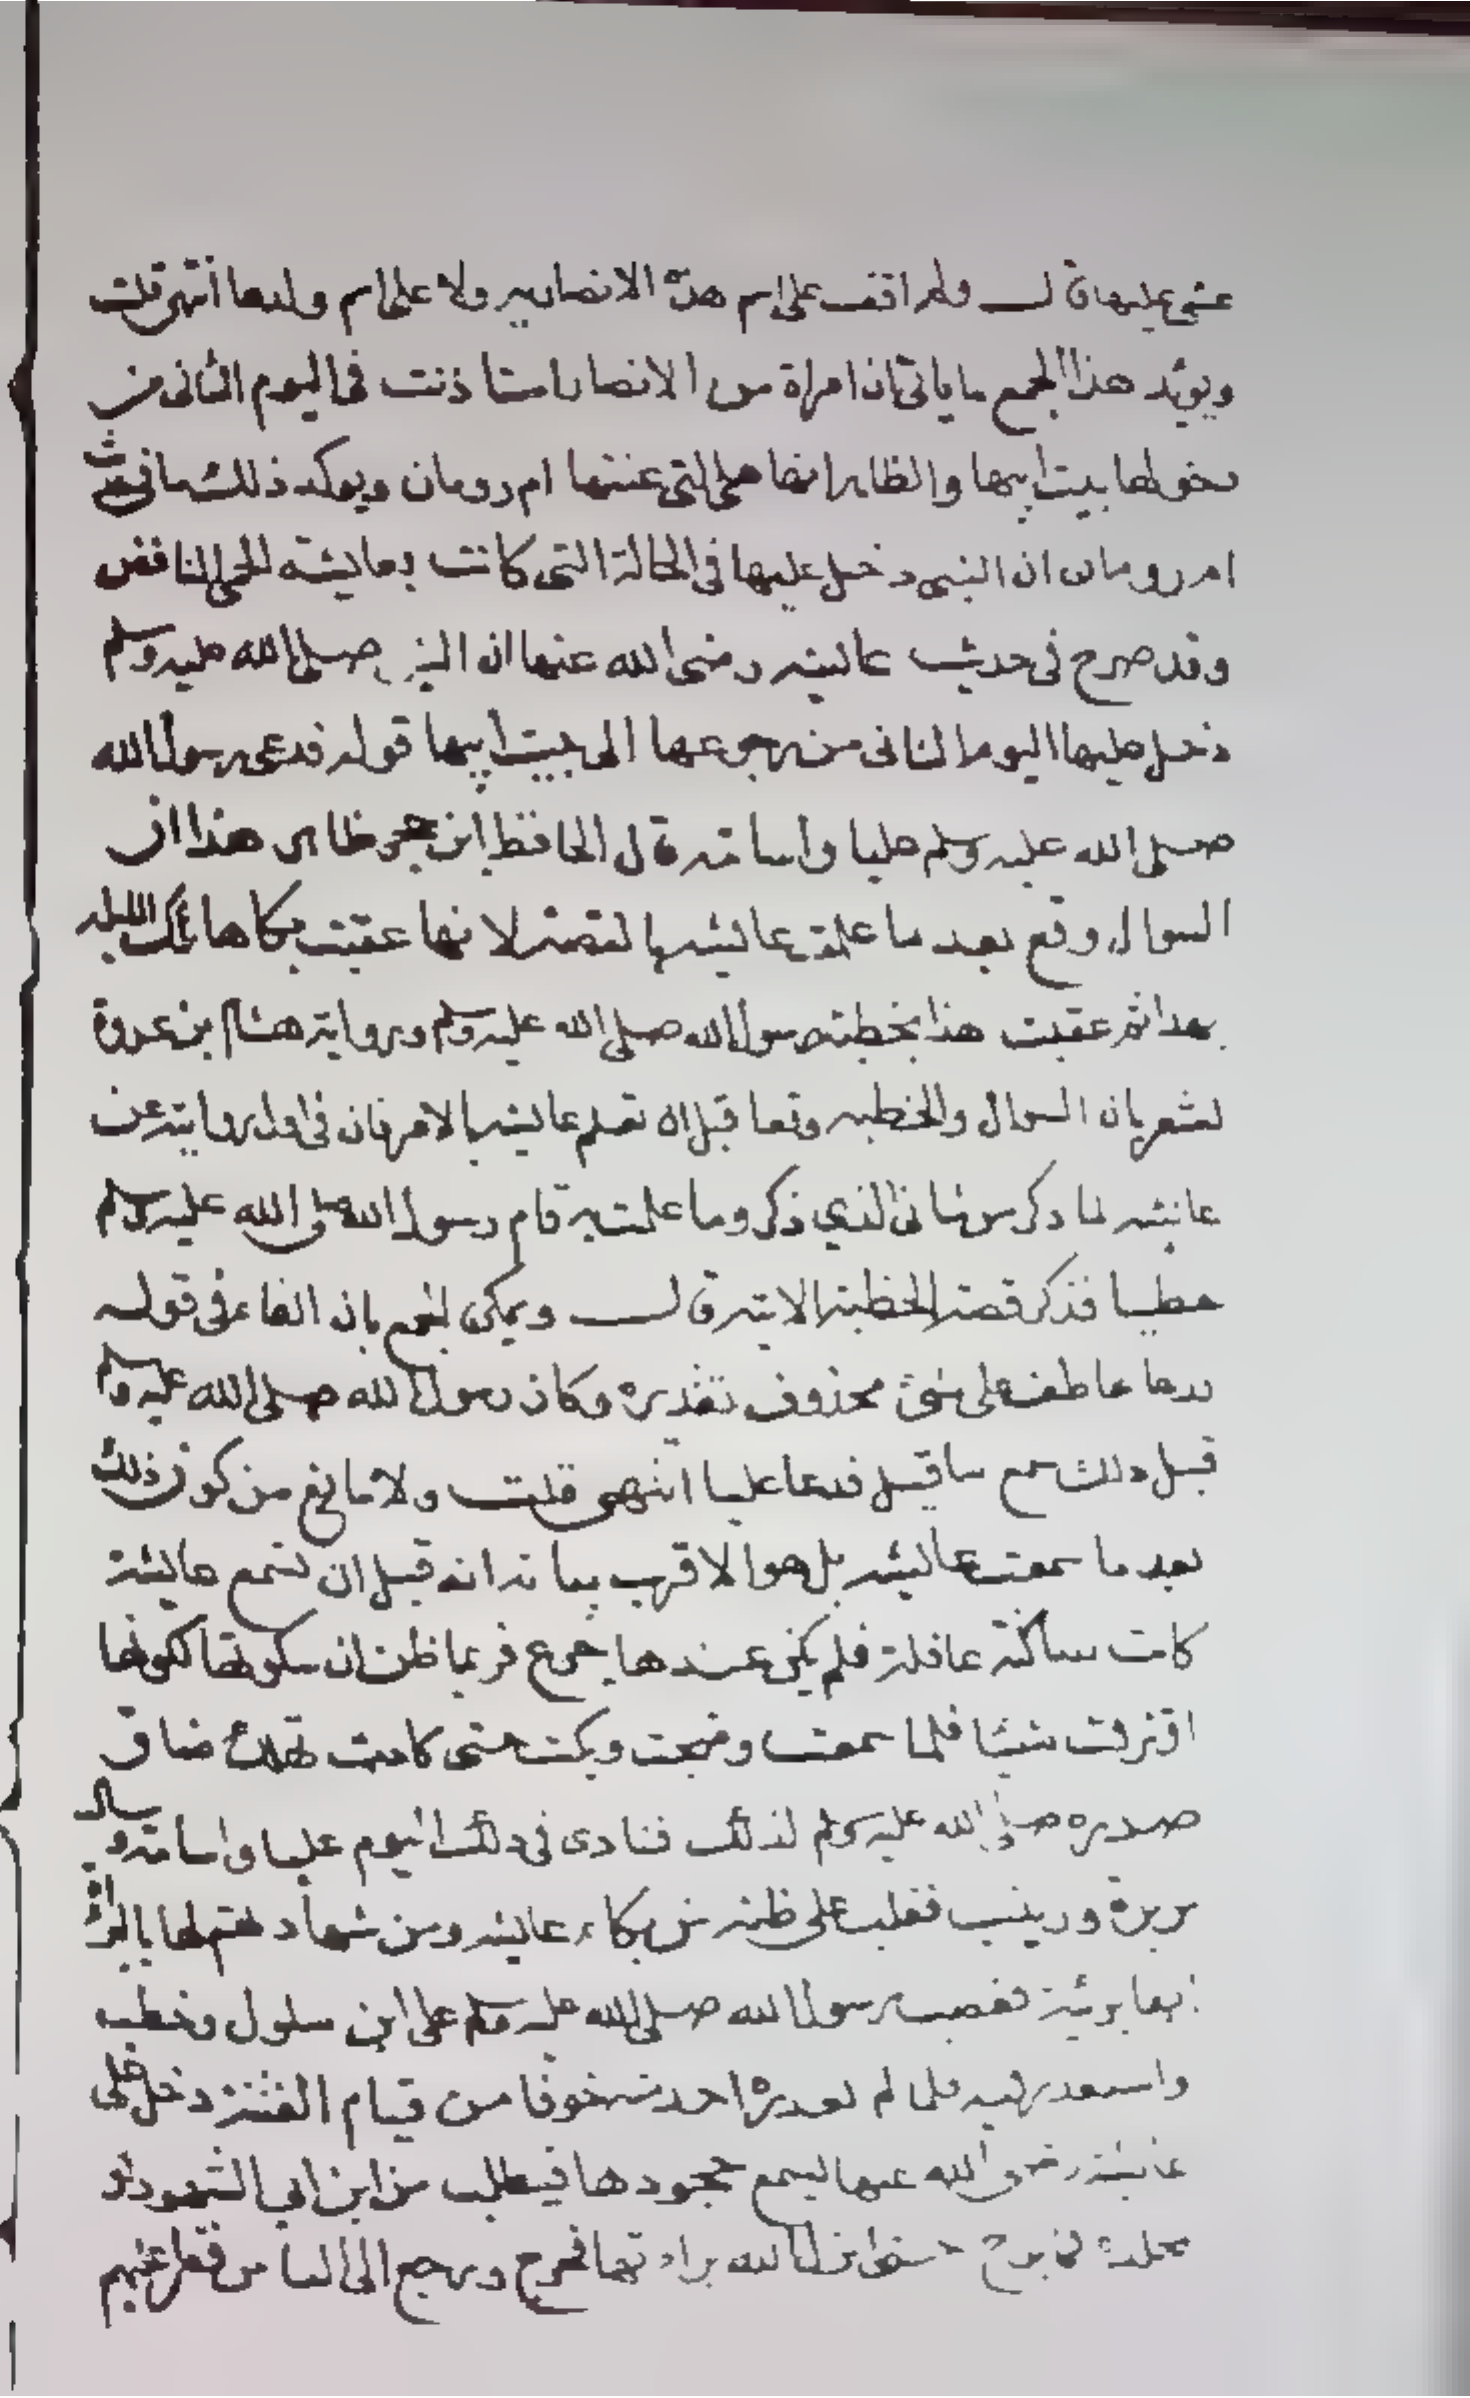 غشي عليها قال ولم اقف على اسم هذه الانصاريه ولا على اسم ولدها انتهى قلت
ويؤيد هذا الجمع ما ياتى ان امراة من الانصار استاذنت فى اليوم الثانى من
دخولها بيت ابيها والظاهر انها هى التى عنتها ام رومان ويوكد ذلك ما فى حديث
ام رومان ان النبى دخل عليها فى الحالة التى كانت بعايشة الحمى النافض
وقد صرح فى حديث عايشه رضى الله عنها ان النبى صلى الله عليه وسلم
دخل عليها اليوم الثانى من رجوعها الى بيت ابيها قوله فدعى رسول الله
صلى الله عليه وسلم عليا واسامة قال الحافظ ابن حجر ظاهر هذا ان
السوال وقع بعد ما علمت عايشه بالقصة لانها عقبت بكاها تلك الليله
بهذا ثم عقبت هذا بخطبته رسول الله صلى الله عليه وسلم ورواية هشام بن عروة
تشعر بان السوال والخطبه وقعا قبل ان تعلم عايشه بالامر فان فى اول روايته عن
عايشه لما ذكر من شانى الذي ذكر وما علمت به قام رسول الله صلى الله عليه وسلم
خطيبا فذكر قصة الخطبة الاتية قال ويمكن الجمع بان الفاء فى قوله
فدعا عاطفه على شئ محذوف تقديره وكان رسول الله صلى الله عليه وسلم
قبل ذلك سمع ما قيل فدعا عليا انتهى قلت ولا مانع من كون ذلك
بعد ما سمعت عايشه بل هو الاقرب بيانه انه قبل ان تسمع عايشة
كانت ساكنة غافلة فلم يكن عندها جزع فربما ظن ان سكوتها لكونها
اقترفت شيئا فلما سمعت وبكت حتى كادت تهلك ضاق
صدره صلى الله عليه وسلم لذلك فنادى فى ذلك اليوم عليا واسامة وسال
بريرة وزينب فغلب على ظنه من بكاء عايشه ومن شهادتهم لها بالبراة
انها بريئة فغضب رسول الله صلى الله عليه وسلم على ابن سلول وخطب
واستعذر فيه فلما لم يعذره احد منه خوفا من قيام الفتنة دخل على
عايشة رضى الله عنها ليسمع جحودها فيطلب من ابن ابي الشهود او
يجلده فما برح حتى انزل الله براءتها فخرج ورجع الى الناس فقرا عليهم